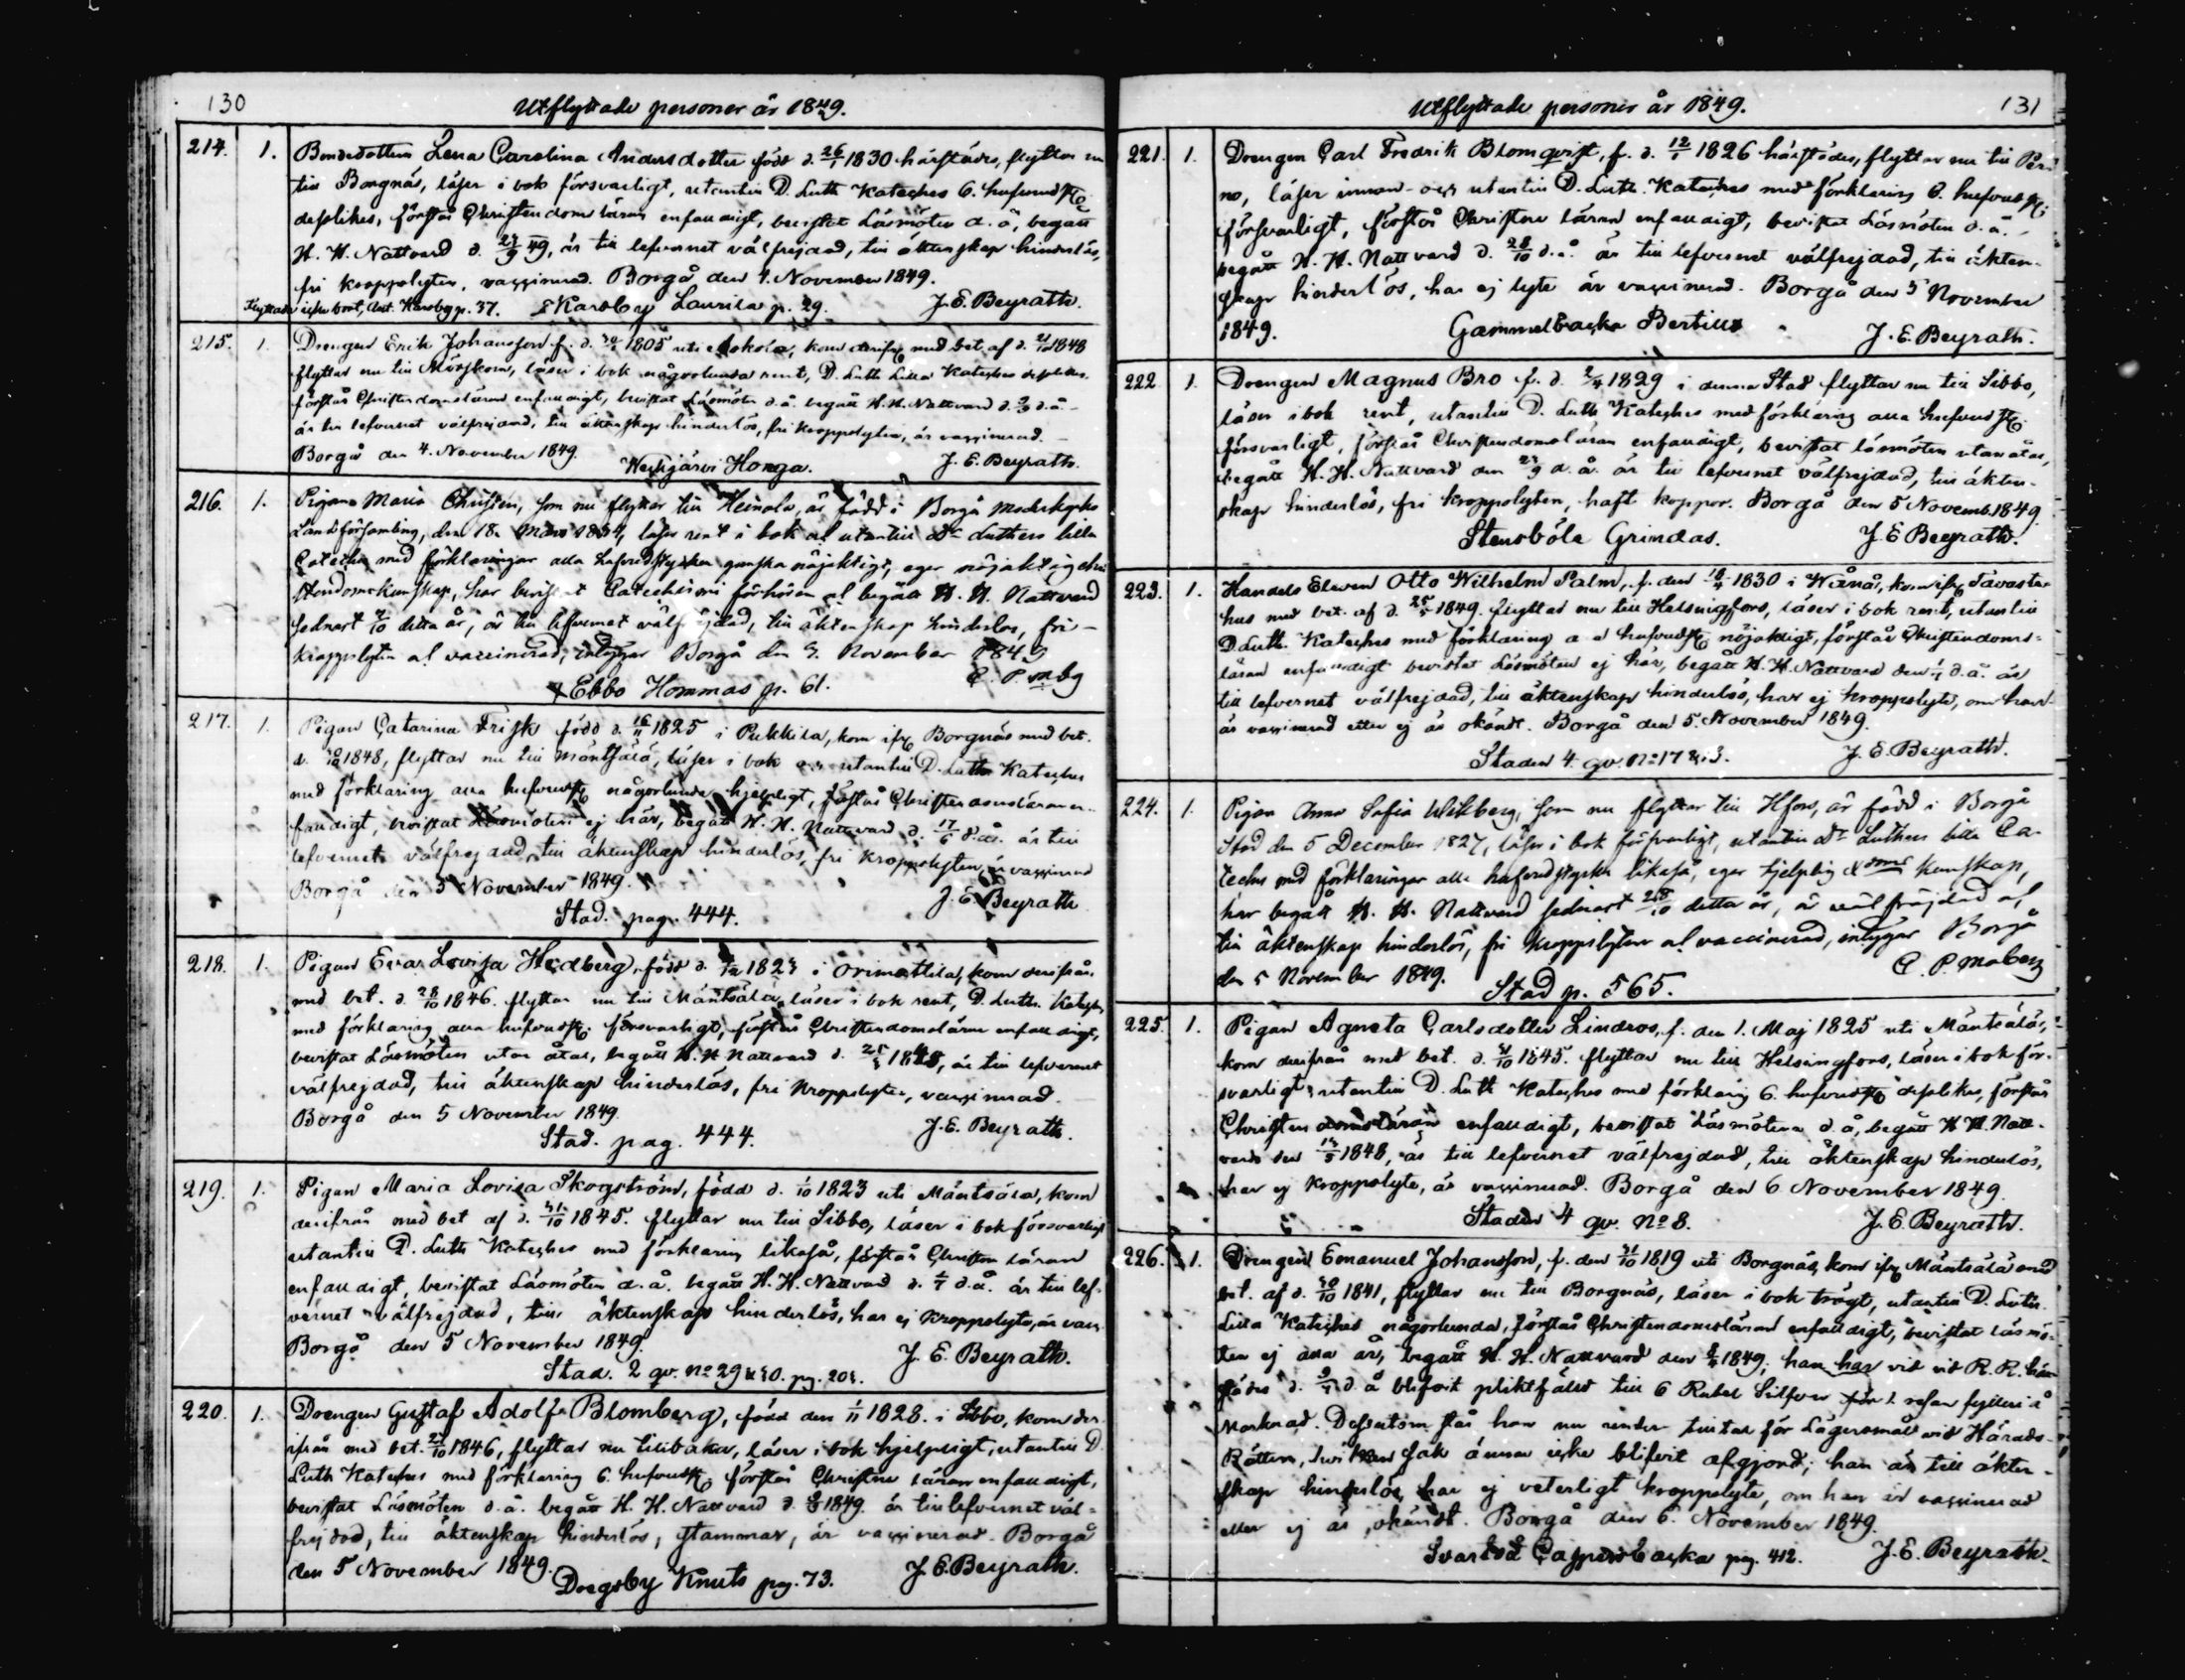 130
Utflyttade personer år 1849.
214. 1. Bondedottern Lena Carolina Andersdotter född d. 26/1 1830 härstädes, flyttar nu
till Borgnäs, läser i bok försvarligt, utantill D. Luth Kateches 6. hufvudst
deslikes, förstår Christendomsläran enfaldigt, bevistat Läsmöten d. å, begått
H. H. Nattvard d. 49, är till lefvernet välfrejdad, till äktenskap hinderlös,
fri kroppslyten, vaccinerad. Borgå den 4. November 1849.
Flyttade icke bort, Karsby p. 37. Karsby Laurila p. 29. J. E. Beyrath.
215. 1. Drengen Erik Johansson f. d. 1805 uti Askola, kom med bet. af d. 1848
flyttar nu till Mörskom, läser i bok någorlunda rent, D. Luth Lilla Kateches deslikes.
förstår Christendomsläran enfaldigt, bevistat Läsmöten d. å. begått H. H. Nattvard d. d. å.
är till lefvernet välfrejdad, till äktenskap hinderlös, fri kroppslyten, är vaccinerad.
Borgå den 4. November 1849. Veckjärvi Honga. J. E. Beyrath.
216. 1. Pigan Maria Christen, som nu flyttar till Heinola, är född i Borgå Moderkyrko
Landsförsamling, den 18 Mars, läser rent i bok ol utantill Dr Luthers lilla
Cateches med förklaringar alla hufvudstycken ganska nöjaktigt, eger nöjaktig chri-
stendomskunskap, har bevistat Catechismi förhören ol begått H. H. Nattvard
sednast detta år, är till lefvernet välfrejdad, till äktenskap hinderlös, fri
kroppslyten ol vaccinerad, intygar Borgå den November 1849
Ebbo Hommas p. 61. C. P. mbg
217. 1. Pigan Catarina Frisk född d. 16/11 1825 i Pukkila, kom ifr Borgnäs med bet.
d. 1848, flyttar nu till Mäntsälä, läser i bok och utantill D. Luth Kateches
med förklaring alla hufvudst någorlunda hjelpligt, förstår Christendomsläran en-
faldigt, bevistat Läsmöten ej här, begått H. H. Nattvard d. 17/6 d. å. är till
lefvernet välfrejdad, till äktenskap hinderlös, fri kroppslyten, är vaccinerad
Borgå den 5 November 1849.
Stad. pag. 444. J. E. Beyrath
218. 1. Pigan Eva Lovisa Hedberg, född d. 1823 i Orimattila, kom derifrån
med bet. d. 28/10 1846. flyttar nu till Mäntsälä, läser i bok rent, D. Luth. Kateches
med förklaring alla hufvudst. försvarligt, förstår Christendomsläran enfaldigt,
bevistat Läsmöten utan åtal, begått H. H. Nattvard d. är till lefvernet
välfrejdad, till äktenskap hinderlös, fri kroppslyten, vaccinerad.
Borgå den 5 November 1849.
Stad. pag. 444. J. E. Beyrath.
219. 1. Pigan Maria Lovisa Skogström, född d. 1/10 1823 uti Mäntsälä, kom
derifrån med bet af d. 1845. flyttar nu till Sibbo, läser i bok försvarligt
utantill D. Luth Kateches med förklaring likaså, förstår Christna läran
enfaldigt, bevistat Läsmöten d. å. begått H. H. Nattvard d. d. å. är till lef-
vernet välfrejdad, till äktenskap hinderlös, har ej kroppslyte, är vacc
Borgå den 5 November 1849.
Stad. 2 qv. No 29 & 30. pg. J. E. Beyrath.
220. 1. Drengen Gustaf Adolf Blomberg, född den 1/11 1828. i Sibbo, kom der-
ifrån med bet. 1846, flyttar nu tillbaka, läser i bok hjelpligt, utantill D.
Luth Kateches med förklaring 6. hufvudst, förstår Christna läran enfaldigt,
bevistat Läsmöten d. å. begått H. H. Nattvard d. 1849. är till lefvernet väl-
frejdad, till äktenskap hinderlös, stammar, är vaccinerad. Borgå
den 5 November 1849. Drägsby Knuts pag. 73. J. E. Beyrath.
Utflyttade personer år 1849.
131
221. 1. Drengen Carl Fredrik Blomqvist, f. d. 12/1 1826 härstädes, flyttar nu till Per-
no, läser innan- och utantill D. Luth. Kateches med förklaring 6. hufvudst;
försvarligt, förstår Christna läran enfaldigt, bevistat Läsmöten d. å.
begått H. H. Nattvard d. 28/10 d. å. är till lefvernet välfrejdad, till äkten-
skap hinderlös, har ej lyte är vaccinerad. Borgå den 5 November
1849. Gammelbacka Bertills J. E. Beyrath.
222 1. Drengen Magnus Bro f. d. 2/4 1829 i denna Stad flyttar nu till Sibbo,
läser i bok rent, utantill D. Luth Kateches med förklaring alla hufvudst.
försvarligt, förstår Christendomsläran enfaldigt, bevistat läsmöten utan åtal,
begått H. H. Nattvard den d. å. är till lefvernet välfrejdad, till äkten-
skap hinderlös, fri kroppslyten, haft koppor. Borgå den 5 Novemb. 1849.
Stensböle Grindas. J. E Beyrath.
223. 1. Handels Eleven Otto Wilhelm Palm, f. den 1830 i Wånå, kom ifr Tavaste-
hus med bet. af d. 1849. flyttar nu till Helsingfors, läser i bok rent, utantill
D Luth. Kateches med förklaring hufvudst, nöjaktigt, förstår Christendoms-
läran enfaldigt bevistat Läsmöten ej här, begått H. H. Nattvard den d. å. är
till lefvernet välfrejdad, till äktenskap hinderlös, har ej kroppslyte, om han
är vaccinerad eller ej är okändt. Borgå den 5. November 1849.
Staden 4. qv. No 17 J. E. Beyrath.
224. 1. Pigan Anna Sofia Wikberg, som nu flyttar till Hfors, är född i Borgå
Stad den 5 December 1827, läser i bok försvarligt, utantill Dr Luthers lilla Ca-
teches med förklaringar alla hufvudstycken likaså, eger hjelplig kunskap,
har begått H. H. Nattvard sednast 28/10 detta år, är välfräjdad ol
till äktenskap hinderlös, fri kroppslyten ol vaccinerad, intygar Borgå
den 5 November 1849. Stad p. 565. C. P. Moberg
225. 1. Pigan Agneta Carlsdotter Lindros, f. den 1. Maj 1825 uti Mäntsälä,
kom derifrån med bet. d. 1845. flyttar nu till Helsingfors, läser i bok för-
svarligt, utantill D. Luth Kateches med förklaring 6. hufvudst deslikes, förstår
Christendomsläran enfaldigt, bevistat Läsmötena d. å, begått H H. Natt-
vard den 1848, är till lefvernet välfrejdad, till äktenskap hinderlös,
har ej kroppslyte, är vaccinerad. Borgå den 6 November 1849.
Staden 4 qv. No 8. J. E. Beyrath.
226. 1. Drengen Emanuel Johansson, f. den 1819 uti Borgnäs, kom ifr Mäntsälä med
bet. af d. 1841, flyttar nu till Borgnäs, läser i bok trögt, utantill D. Luth.
Lilla Kateches någorlunda, förstår Christendomsläran enfaldigt, bevistat läsmö-
ten ej alla år, begått H. H. Nattvard den 1849; han har vid R. R. här-
städes d. d. å blifvit pliktfälld till 6 Rubel Silfver för 1. resan fylleri å
Marknad. Dessutom står han nu under tilltal för Lägersmål vid Härads-
Rätten, hvilken sak ännu icke blifvit afgjord; han är till äkten-
skap hinderlös, har ej veterligt kroppslyte, om han är vaccinerad
eller ej är okändt. Borgå den 6. November 1849.
Svartså Caspersbacka pag. 412. J. E. Beyrath.